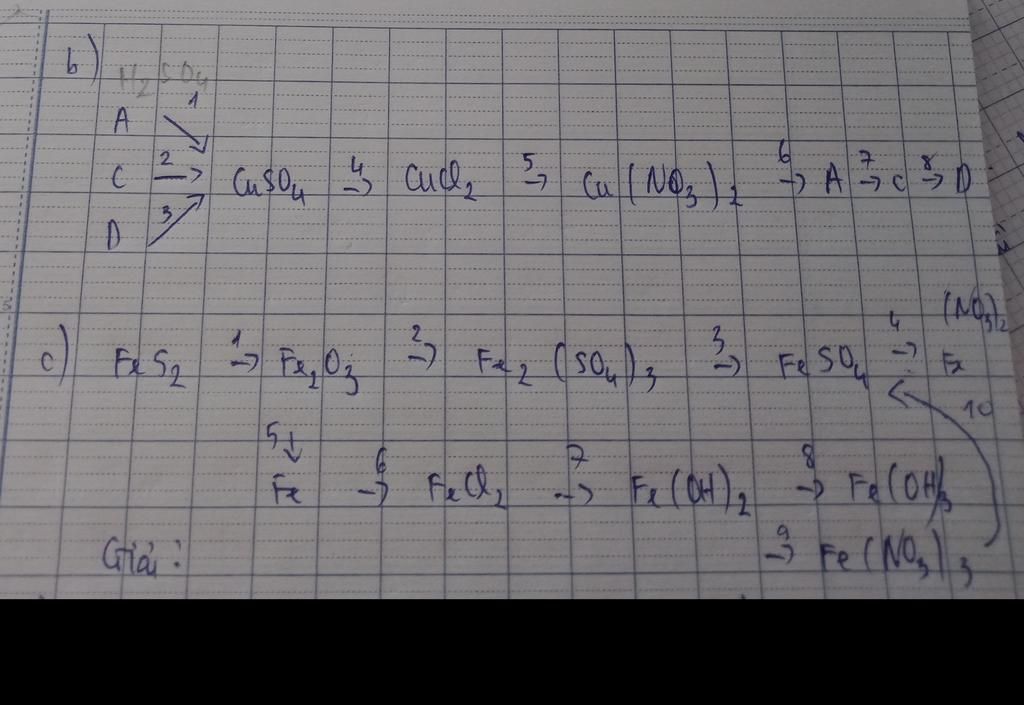 b)
H2SO4
A 1
C 2→ CuSO4 4→ CuCl2 5→ Cu(NO3)2 6→ A 7→ C 8→ D
D 3
(NO3)2
c) FeS2 1→ Fe2O3 2→ Fe2(SO4)3 3→ FeSO4 4→ Fe
10
5↓
Fe 6→ FeCl2 7→ Fe(OH)2 8→ Fe(OH)3
Giải: 9→ Fe(NO3)3